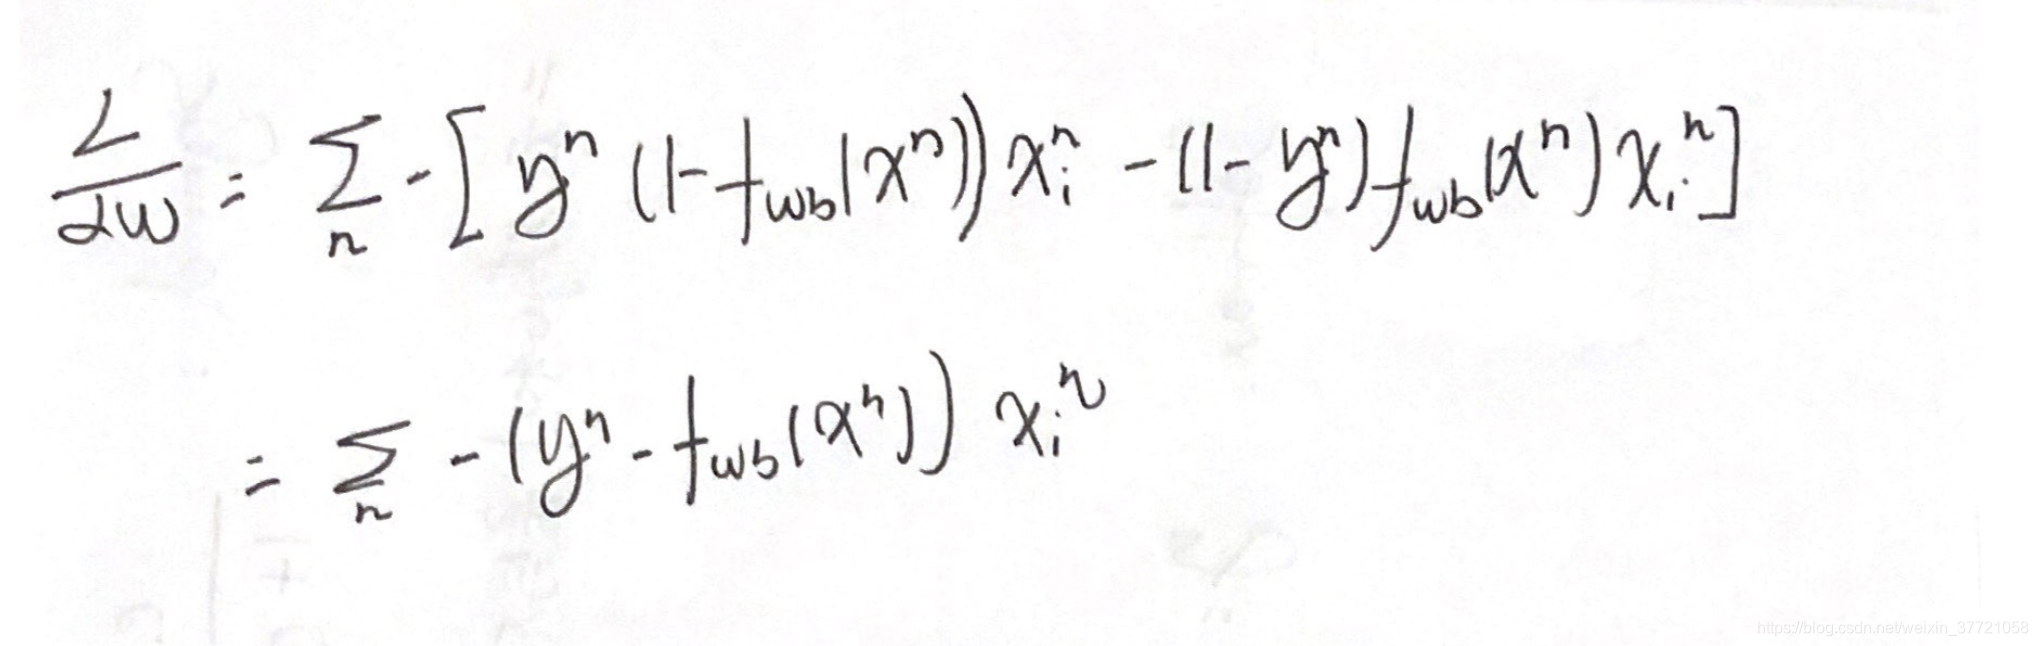 L/∂w = Σ_n -[y^n (1-f_wb(x^n)) x_i^n - (1-y^n) f_wb(x^n) x_i^n]
= Σ_n -(y^n - f_wb(x^n)) x_i^n
https://blog.csdn.net/weixin_37721058